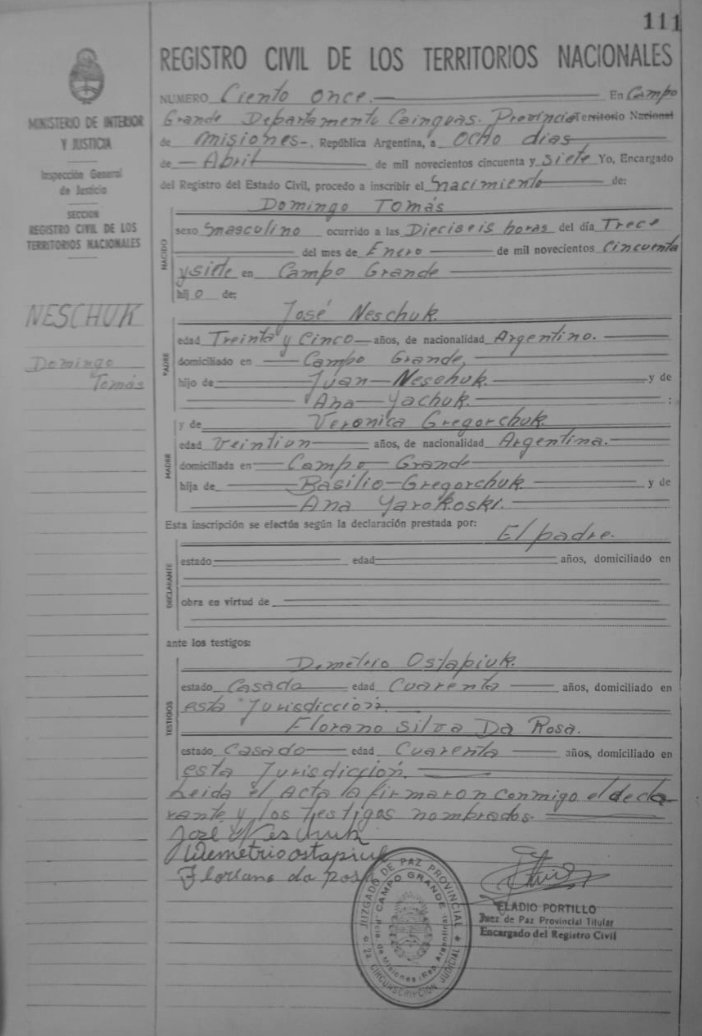 111
REGISTRO CIVIL DE LOS TERRITORIOS NACIONALES
MINISTERIO DE INTERIOR
Y JUSTICIA
Inspección General
de Justicia
SECCION
REGISTRO CIVIL DE LOS
TERRITORIOS NACIONALES
NESCHUK
Domingo
Tomás
NUMERO Ciento once.- En Campo
Grande Departamento Cainguas. Provincia Territorio Nacional
de Misiones-, República Argentina, a ocho dias
de - Abril de mil novecientos cincuenta y Siete Yo, Encargado
del Registro del Estado Civil, procedo a inscribir el Nacimiento de:
Domingo Tomás
NACIDO
sexo Masculino ocurrido a las Dieciseis horas del día Trece
del mes de Enero de mil novecientos Cincuenta
y siete en Campo Grande
hijo de:
José Neschuk.
PADRE
edad Treinta y Cinco años, de nacionalidad Argentino.
domiciliado en Campo Grande,
hijo de Juan Neschuk. y de
Ana Yachuk. :
y de Veronica Gregorchuk.
MADRE
edad Veintiun años, de nacionalidad Argentina.
domiciliada en Campo Grande
hija de Basilio Gregorchuk y de
Ana Yarokoski.
Esta inscripción se efectúa según la declaración prestada por:
El padre.
DECLARANTE
estado edad años, domiciliado en
obra en virtud de
ante los testigos:
Demetrio Ostapiuk.
TESTIGOS
estado Casado edad Cuarenta años, domiciliado en
esta Jurisdicción.
Florano Silva Da Rosa.
estado Casado edad Cuarenta años, domiciliado en
esta Jurisdicción.
Leida el Acta la firmaron conmigo el decla-
rante y los testigos nombrados.
José Neschuk
Demetrio ostapiuk
Floriano da rosa
JUZGADO DE PAZ PROVINCIAL
CAMPO GRANDE
Pcia. de Misiones (Rep. Argentina)
2a. CIRCUNSCRIPCION JUDICIAL
ELADIO PORTILLO
Juez de Paz Provincial Titular
Encargado del Registro Civil